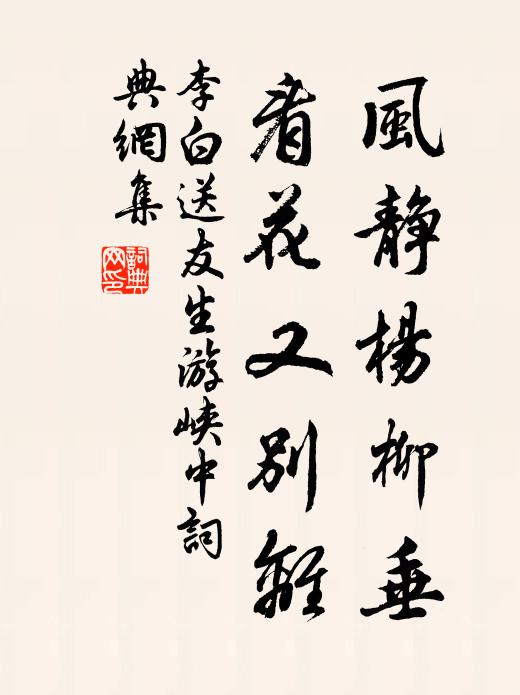 風静楊柳垂
看花又别離
李白送友生游峽中詞
典網集
詞典
网印